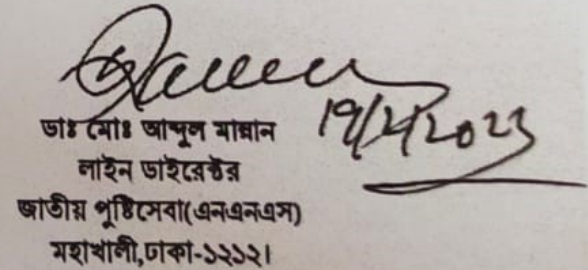 19/2/2023
ডাঃ মোঃ আব্দুল মান্নান
লাইন ডাইরেক্টর
জাতীয় পুষ্টিসেবা(এনএনএস)
মহাখালী,ঢাকা-১২১২।